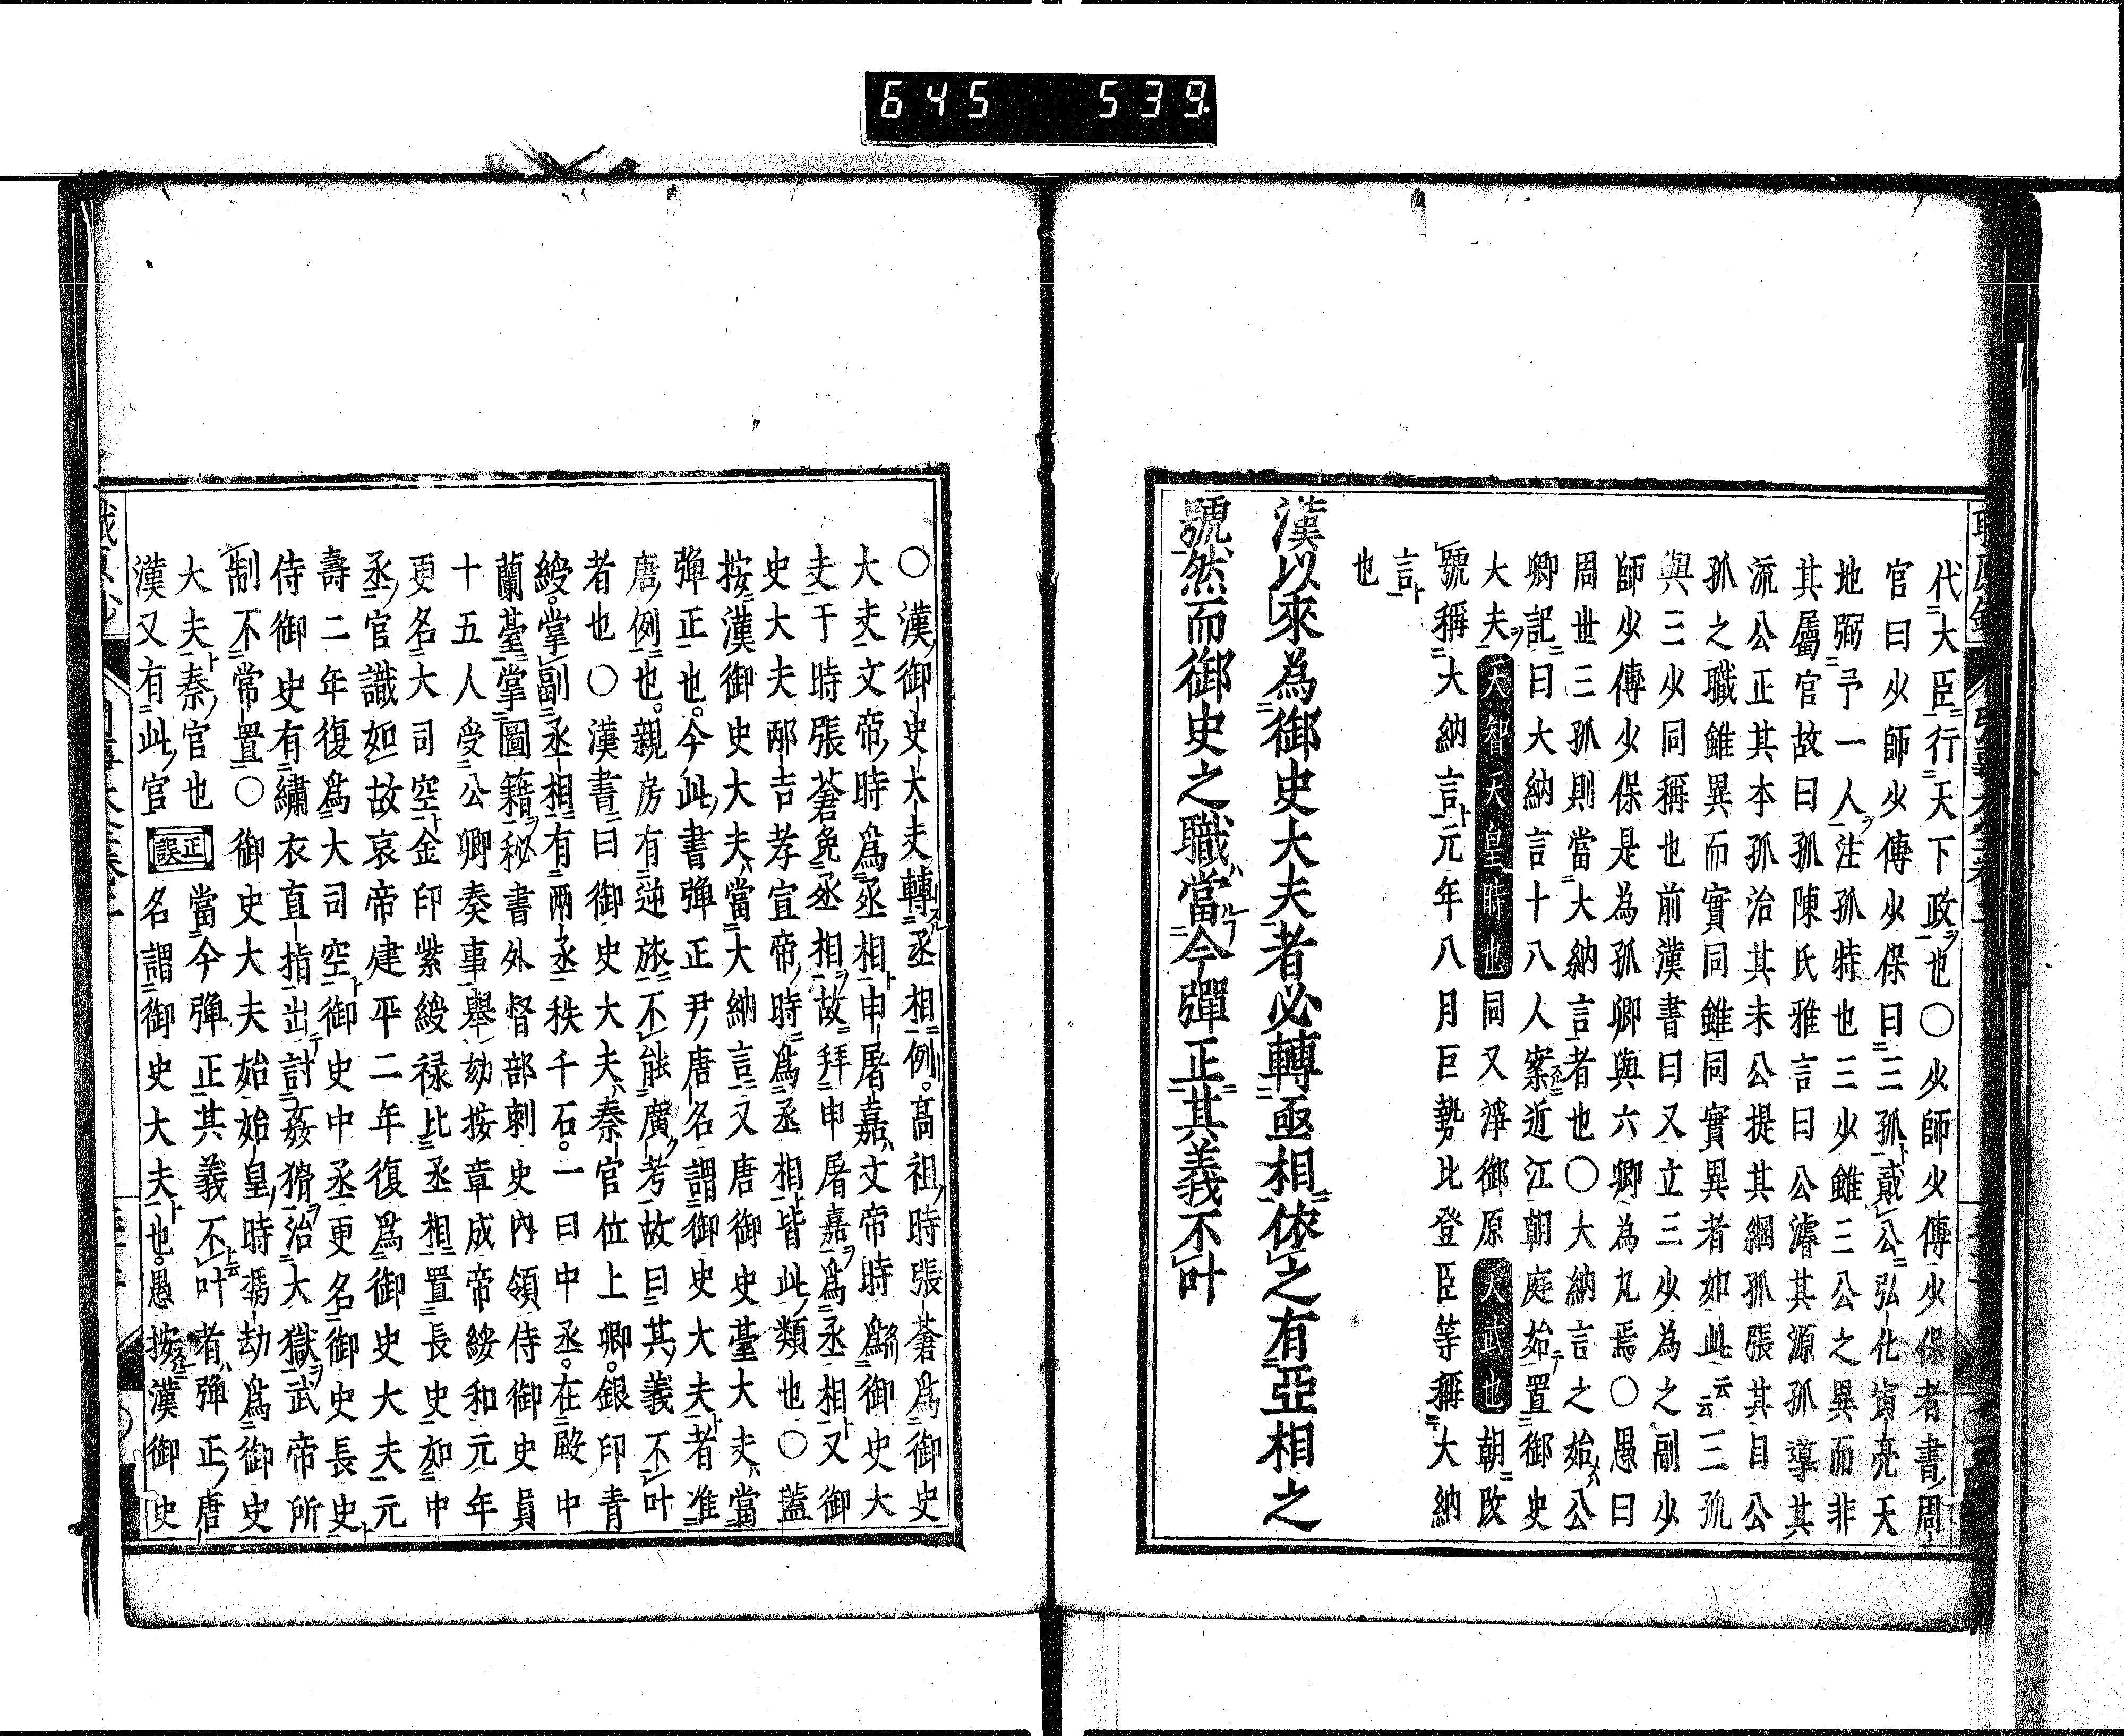 645 539
代大臣行天下政也〇少師少傅少保者書周
官曰少師少傅少保曰三孤貳公弘化寅亮天
地弼予一人注孤特也三少雖三公之異而非
其屬官故曰孤陳氏雅言曰公濬其源孤導其
流公正其本孤治其末公提其綱孤張其目公
孤之職雖異而實同雖同實異者如此云云三孤
與三少同稱也前漢書曰又立三少為之副少
師少傅少保是為孤卿與六卿為九焉〇愚曰
周世三孤則當大納言者也〇大納言之始公
卿記曰大納言十八人案近江朝庭始置御史
大夫天智天皇時也同又淨御原天武也朝改
號稱大納言元年八月巨勢比登臣等稱大納
言
也
漢以來為御史大夫者必轉亟相依之有亞相之
號然而御史之職當今彈正其義不叶
〇漢御史大夫轉丞相例高祖時張蒼爲御史
大夫文帝時爲丞相申屠嘉文帝時爲御史大
夫于時張蒼免丞相故拜申屠嘉爲丞相又御
史大夫邴吉孝宣帝時爲丞相皆此類也〇蓋
按漢御史大夫當大納言又唐御史臺大夫當
彈正也今此書彈正尹唐名謂御史大夫者准
唐例也親房有逆旅不能廣考故曰其義不叶
者也〇漢書曰御史大夫秦官位上卿銀印青
綬掌副丞相有兩丞秩千石一曰中丞在殿中
蘭臺掌圖籍秘書外督部刺史內領侍御史員
十五人受公卿奏事舉劾按章成帝綏和元年
更名大司空金印紫綬禄比丞相置長史如中
丞官識如故哀帝建平二年復爲御史大夫元
壽二年復爲大司空御史中丞更名御史長史
侍御史有繡衣直指出討姦猾治大獄武帝所
制不常置〇御史大夫始始皇時馮劫爲御史
大夫秦官也正誤當今彈正其義不叶者彈正唐
漢又有此官名謂御史大夫也愚按漢御史